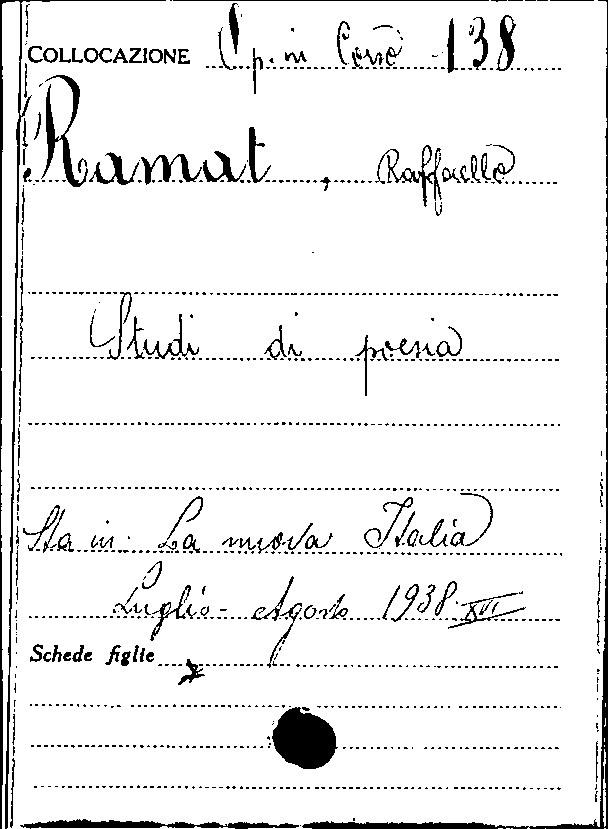 COLLOCAZIONE Op. in Corso - 138
Ramat, Raffaello
Studi di poesia
Sta in: La nuova Italia
Luglio - Agosto 1938 XVI
Schede figlie